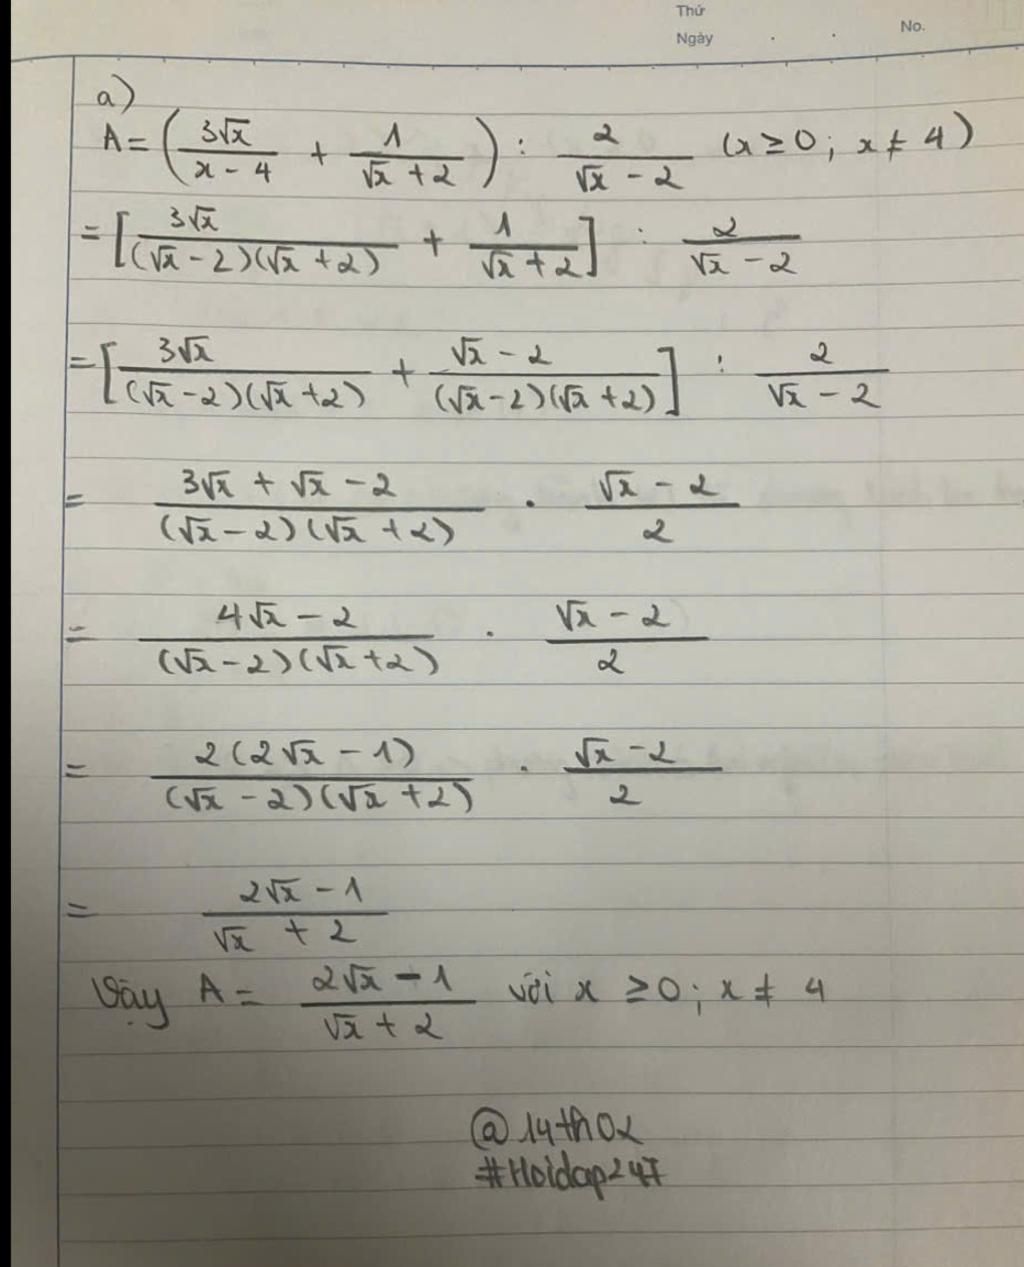 Thứ
Ngày . . No.
a)
A = (3√x/(x - 4) + 1/(√x + 2)) : 2/(√x - 2) (x ≥ 0; x ≠ 4)
= [3√x/((√x - 2)(√x + 2)) + 1/(√x + 2)] : 2/(√x - 2)
= [3√x/((√x - 2)(√x + 2)) + (√x - 2)/((√x - 2)(√x + 2))] : 2/(√x - 2)
= (3√x + √x - 2)/((√x - 2)(√x + 2)) . (√x - 2)/2
= (4√x - 2)/((√x - 2)(√x + 2)) . (√x - 2)/2
= 2(2√x - 1)/((√x - 2)(√x + 2)) . (√x - 2)/2
= (2√x - 1)/(√x + 2)
Vậy A = (2√x - 1)/(√x + 2) với x ≥ 0; x ≠ 4
@14th02
#Hoidap247